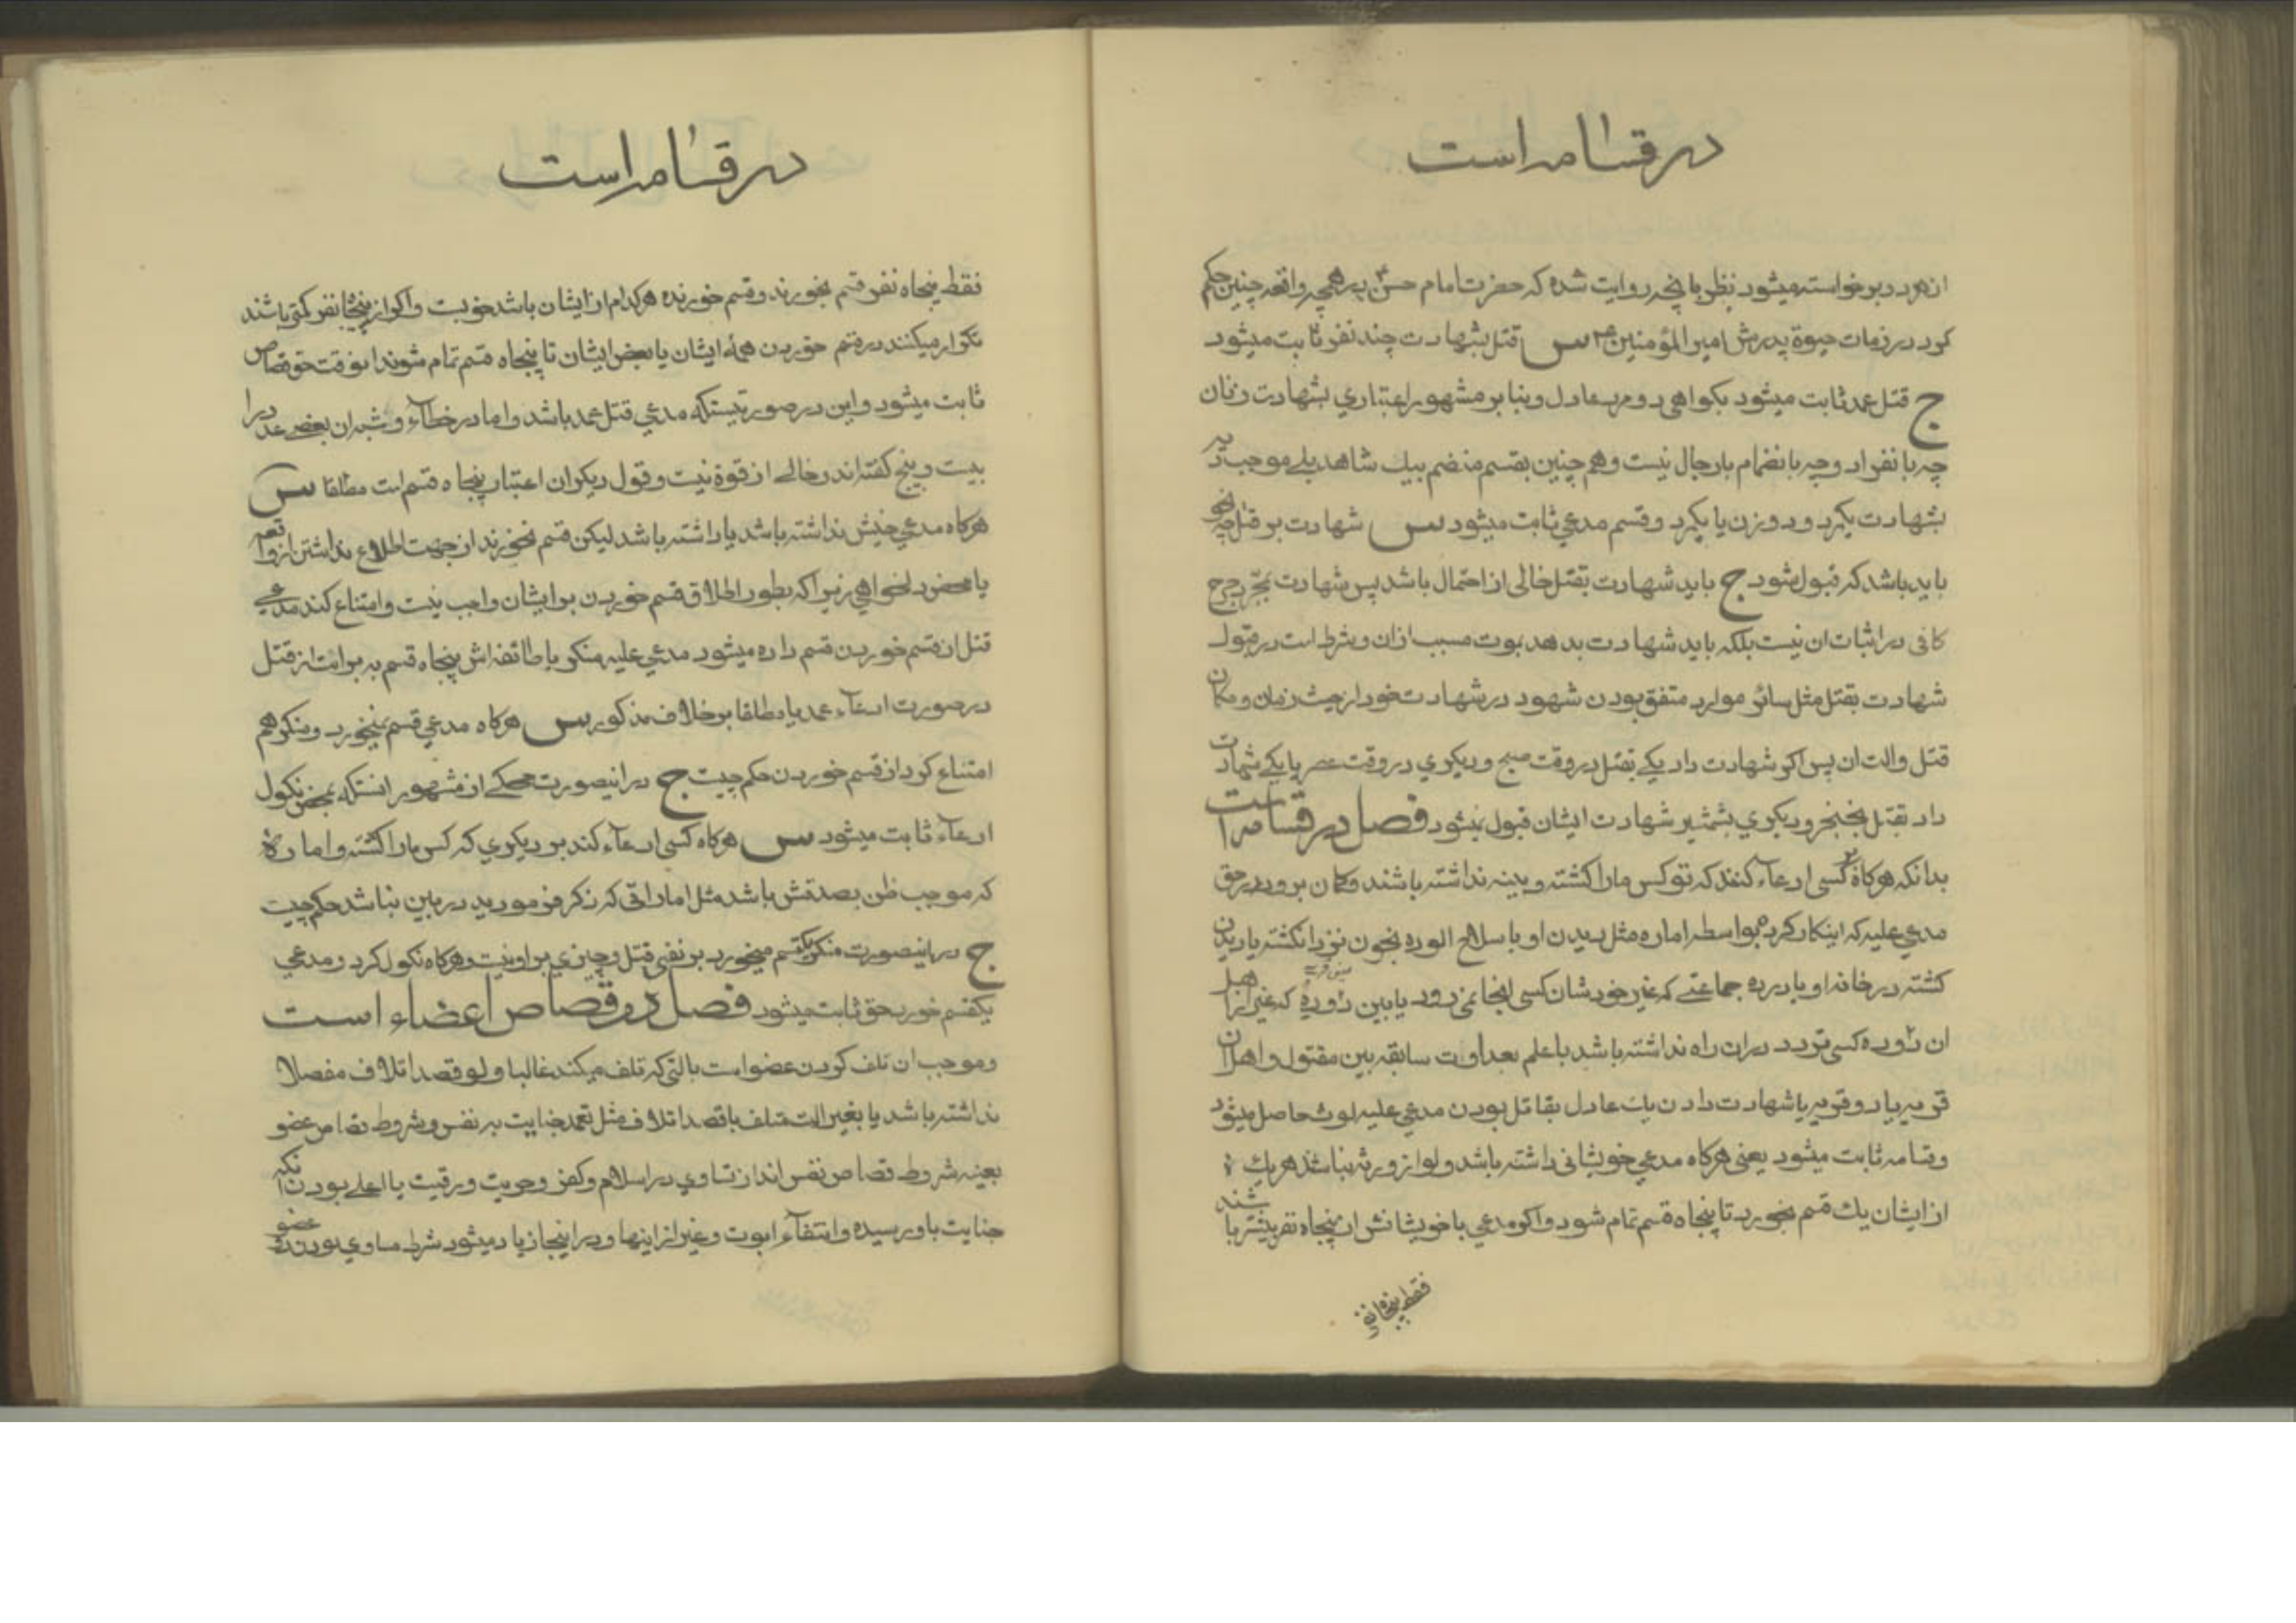 در قسامه است
از هر دو برخواسته میشود نظر بانچه روایت شده که حضرت امام حسن ع بر همچه واقعه چنین حکم
کرد در زمان حیوة پدرش امیر المؤمنین ع س قتل بشهادت چند نفر ثابت میشود
ج قتل عمد ثابت میشود بکواهی دو مرد عادل و بنا بر مشهور اعتباری بشهادت زنان
چه بانفراد و چه بانضمام با رجال نیست و هم چنین بقسم منضم بیک شاهد بلے موجب دیه
بشهادت یکمرد و دو زن یا یکمرد و قسم مدعی ثابت میشود س شهادت بر قتل چه نحو
باید باشد که قبول شود ج باید شهادت بقتل خالی از احتمال باشد پس شهادت بمجرد جرح
کافی در اثبات ان نیست بلکه باید شهادت بدهد بموت مسبب ازان و شرط است در قبول
شهادت بقتل مثل سائر موارد متفق بودن شهود در شهادت خود از حیث زمان و مکان
قتل و الت ان پس اکر شهادت داد یکے بقتل در وقت صبح و دیکری در وقت عصر یا یکے شهادت
داد بقتل بخنجر و دیکری بشمشیر شهادت ایشان قبول نمیشود فصل در قسامه است
بدانکه هرکاه کسی ادعآء کند که تو کس ما را کشته و بینه نداشته باشند و کمان برود در حق
مدعی علیه که اینکار کرده بواسطه اماره مثل دیدن او با سلاح الوده بخون نزد انکشته یا دیدن
کشته در خانه او یا در ده جماعتے که غیر خودشان کسی انجا نمی رود یا بین دو ده که غیر از اهل
ان دو ده کسی تردد در ان راه نداشته باشد با علم بعداوت سابقه بین مقتول و اهل ان
قریه یا دو قریه یا شهادت دادن یک عادل بقاتل بودن مدعی علیه لوث حاصل میشود
و قسامه ثابت میشود یعنی هرکاه مدعی خویشانی داشته باشد ولو از ورثه نباشند هر یک
از ایشان یک قسم بخورد تا پنجاه قسم تمام شود و اکر مدعی با خویشانش از پنجاه نفر بیشتر باشند
فقط پنجاه نفر
در قسامه است
فقط پنجاه نفر قسم بخورند و قسم خورنده هرکدام از ایشان باشد خوبست و اکر از پنجاه نفر کمتر باشند
تکرار میکنند در قسم خوردن همهٔ ایشان یا بعض ایشان تا پنجاه قسم تمام شوند انوقت حق قصاص
ثابت میشود و این در صورتیستکه مدعی قتل عمد باشد و اما در خطاء و شبه ان بعضے عدد را
بیست و پنج کفته اند و خالے از قوة نیست و قول دیکران اعتبار پنجاه قسم است مطلقا س
هرکاه مدعی خویش نداشته باشد یا داشته باشد لیکن قسم نخورند از جهت اطلاع نداشتن از واقعه
یا محض دلخواهی زیرا که بطور اطلاق قسم خوردن بر ایشان واجب نیست و امتناع کند مدعے
قتل از قسم خوردن قسم داده میشود مدعی علیه منکر با طائفه اش پنجاه قسم به برائت از قتل
در صورت ادعآء عمد یا مطلقا بر خلاف مذکور س هرکاه مدعی قسم نمیخورد و منکر هم
امتناع کرد از قسم خوردن حکم چیست ج در اینصورت محکے از مشهور انستکه بمحض نکول
ادعآء ثابت میشود س هرکاه کسی ادعآء کند بر دیکری که کس ما را کشته و امارهٔ
که موجب ظن بصدقش باشد مثل اماراتی که ذکر فرمودید در بین نباشد حکم چیست
ج در اینصورت منکر یکقسم میخورد بر نفی قتل و چیزی بر او نیست و هرکاه نکول کرد و مدعی
یکقسم خورد حق ثابت میشود فصل در قصاص اعضاء است
و موجب ان تلف کردن عضو است بالتی که تلف میکند غالبا ولو قصد اتلاف مفصلا
نداشته باشد یا بغیر الت متلف با قصد اتلاف مثل تعمد جنایت بر نفس و شروط قصاص عضو
بعینه شروط قصاص نفس اند از تساوی در اسلام و کفر و حریت و رقیت یا اعلے بودن انکه
جنایت باو رسیده و انتفآء ابوت و غیر از اینها و در اینجا زیاد میشود شرط مساوی بودن عضو